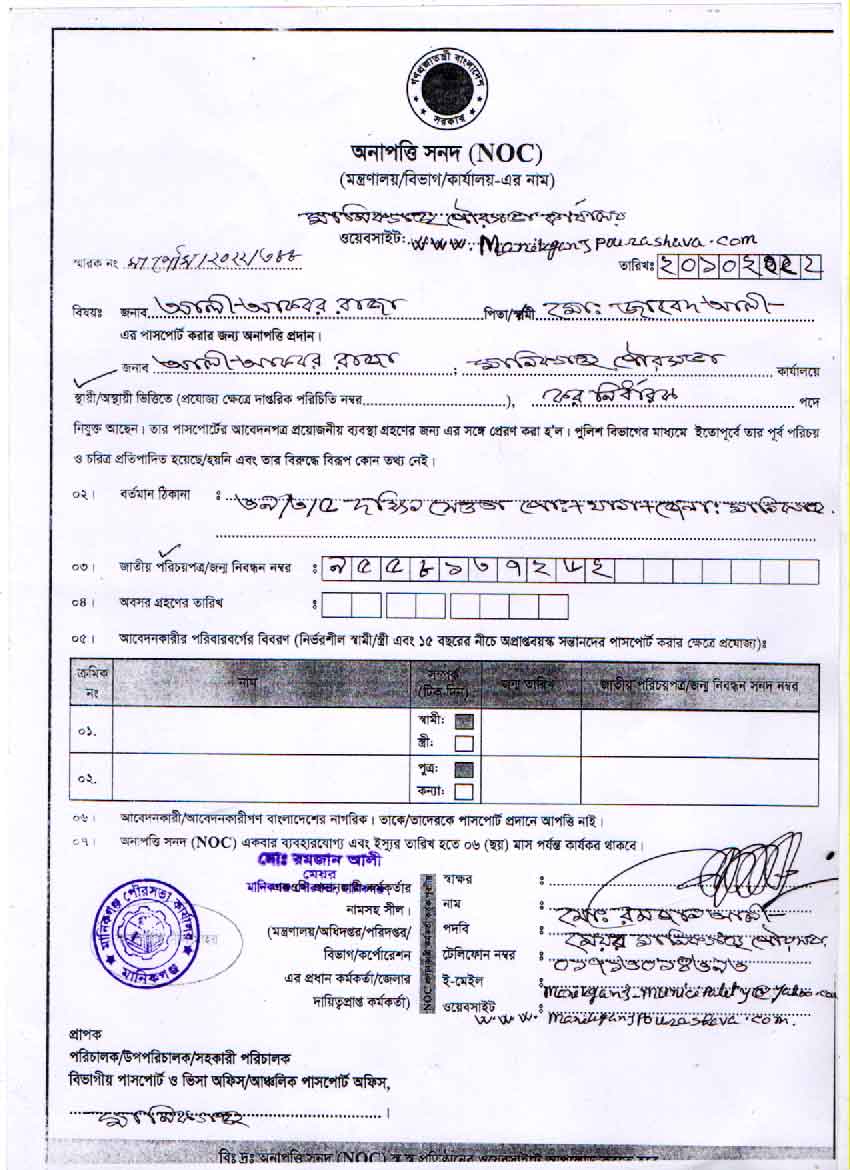 গণপ্রজাতন্ত্রী বাংলাদেশ
সরকার
অনাপত্তি সনদ (NOC)
(মন্ত্রণালয়/বিভাগ/কার্যালয়-এর নাম)
মানিকগঞ্জ পৌরসভা কার্যালয়
ওয়েবসাইট: www.Manikganjpourashava.com
স্মারক নং মা/পৌস/২০২২/৩৪৪ তারিখঃ ২০১০২২
বিষয়ঃ জনাব আলী-আকবর রাজা পিতা/স্বামী মোঃ জাবেদ আলী-
এর পাসপোর্ট করার জন্য অনাপত্তি প্রদান।
জনাব আলী-আকবর রাজা , মানিকগঞ্জ পৌরসভা কার্যালয়ে
স্থায়ী/অস্থায়ী ভিত্তিতে (প্রযোজ্য ক্ষেত্রে দাপ্তরিক পরিচিতি নম্বর), কর নির্ধারক পদে
নিযুক্ত আছেন। তার পাসপোর্টের আবেদনপত্র প্রয়োজনীয় ব্যবস্থা গ্রহণের জন্য এর সঙ্গে প্রেরণ করা হ'ল। পুলিশ বিভাগের মাধ্যমে ইতোপূর্বে তার পূর্ব পরিচয়
ও চরিত্র প্রতিপাদিত হয়েছে/হয়নি এবং তার বিরুদ্ধে বিরূপ কোন তথ্য নেই।
০২। বর্তমান ঠিকানা : দক্ষিণ সেওতা পোঃ+থানা+জেলাঃ মানিকগঞ্জ.
০৩। জাতীয় পরিচয়পত্র/জন্ম নিবন্ধন নম্বর :
০৪। অবসর গ্রহণের তারিখ :
০৫। আবেদনকারীর পরিবারবর্গের বিবরণ (নির্ভরশীল স্বামী/স্ত্রী এবং ১৫ বছরের নীচে অপ্রাপ্তবয়স্ক সন্তানদের পাসপোর্ট করার ক্ষেত্রে প্রযোজ্য)ঃ
ক্রমিক নং নাম সম্পর্ক (টিক দিন) জন্ম তারিখ জাতীয় পরিচয়পত্র/জন্ম নিবন্ধন সনদ নম্বর
০১. স্বামী:
স্ত্রী:
০২. পুত্র:
কন্যা:
০৬। আবেদনকারী/আবেদনকারীগণ বাংলাদেশের নাগরিক। তাকে/তাদেরকে পাসপোর্ট প্রদানে আপত্তি নাই।
০৭। অনাপত্তি সনদ (NOC) একবার ব্যবহারযোগ্য এবং ইস্যুর তারিখ হতে ০৬ (ছয়) মাস পর্যন্ত কার্যকর থাকবে।
মোঃ রমজান আলী
মেয়র
মানিকগঞ্জ পৌরসভা কার্যালয়
মানিকগঞ্জ
নামসহ সীল।
(মন্ত্রণালয়/অধিদপ্তর/পরিদপ্তর/
বিভাগ/কর্পোরেশন
এর প্রধান কর্মকর্তা/জেলার
দায়িত্বপ্রাপ্ত কর্মকর্তা)
স্বাক্ষর :
নাম : মোঃ রমজান আলী-
পদবি : মেয়র মানিকগঞ্জ পৌরসভা
টেলিফোন নম্বর :
ই-মেইল : Manikganj_municipality@yahoo.com
ওয়েবসাইট www.manikganjpourashava.com.
প্রাপক
পরিচালক/উপপরিচালক/সহকারী পরিচালক
বিভাগীয় পাসপোর্ট ও ভিসা অফিস/আঞ্চলিক পাসপোর্ট অফিস,
মানিকগঞ্জ।
বিঃ দ্রঃ অনাপত্তি সনদ (NOC)